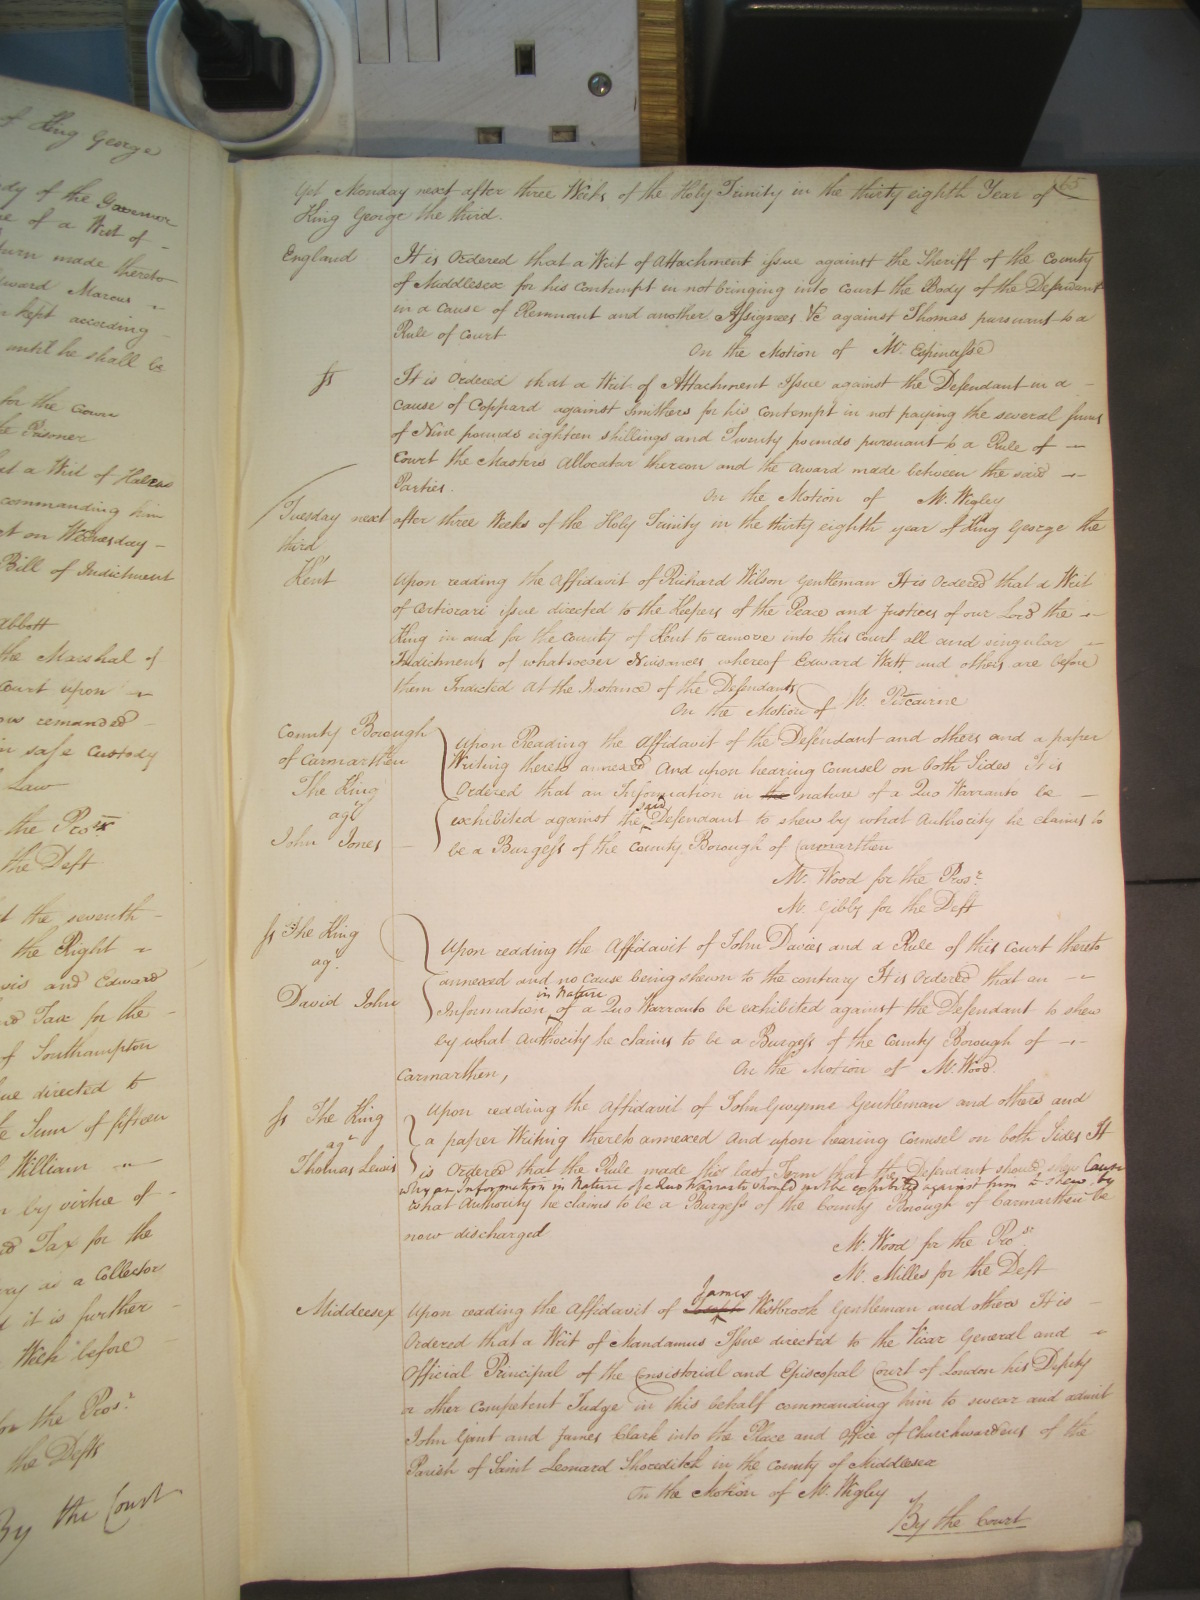 of King George
dy of the Governor
e of a Writ of -
turn made thereto
dward Marcus
n kept according -
until he shall be
for the Crown
he Prisoner
at a Writ of Habeas
commanding him
t on Wednesday -
Bill of Indictment
Abbott
the Marshal of
Court upon
now remanded -
in safe Custody
Law
the Prosr
the Deft
t the seventh -
the Right
vis and Edward
nd Tax for the -
of Southampton
ue directed to
e Sum of fifteen
William
n by virtue of -
nd Tax for the
ry as a Collector
d it is further -
With before
for the Prosr.
the Defts
By the Court
Yet Monday next after three Weeks of the Holy Trinity in the thirty eighth Year of 65
King George the third.
England It is Ordered that a Writ of Attachment issue against the Sheriff of the County
of Middlesex for his Contempt in not bringing into Court the Body of the Defendant
in a Cause of Remnant and another Assignees &c against Thomas pursuant to a
Rule of Court
On the Motion of Mr. Espinasse
Ss It is Ordered that a Writ of Attachment Issue against the Defendant in a -
Cause of Coppard against Smithers for his Contempt in not paying the several sums
of Nine pounds eighteen shillings and Twenty pounds pursuant to a Rule of -
Court the Masters Allocatur thereon and the award made between the said -
Parties. On the Motion of Mr. Wigley
Tuesday next after three Weeks of the Holy Trinity in the thirty eighth year of King George the
third
Kent Upon reading the Affidavit of Richard Wilson Gentleman It is Ordered that a Writ
of Certiorari issue directed to the Keepers of the Peace and Justices of our Lord the -
King in and for the County of Kent to remove into this Court all and singular -
Indictments of whatsoever Nuisances whereof Edward Watt and others are before
them Indicted At the Instance of the Defendants
On the Motion of Mr. Pitcairne
County Borough
of Carmarthen
The King
agt
John Jones
Upon Reading the Affidavit of the Defendant and others and a paper
Writing thereto annexed And upon hearing Counsel on both Sides It is
Ordered that an Information in the nature of a Quo Warranto be -
exhibited against the said Defendant to shew by what Authority he claims to
be a Burgess of the County Borough of Carmarthen
Mr. Wood for the Prosr.
Mr. Gibby for the Deft
Ss The King
agt.
David John
Upon reading the Affidavit of John Davies and a Rule of this Court thereto
annexed and no Cause being shewn to the contrary It is Ordered that an -
Information in Nature of a Quo Warranto be exhibited against the Defendant to shew
by what Authority he claims to be a Burgess of the County Borough of -
Carmarthen, On the Motion of Mr. Wood.
Ss The King
agt
Thomas Lewis
Upon reading the Affidavit of John Gwynne Gentleman and others and
a paper Writing thereto annexed And upon hearing Counsel on both Sides It
is Ordered that the Rule made the last Term that the Defendant should shew Cause
why an Information in Nature of a Quo Warranto should not be exhibited against him to shew by
what Authority he claims to be a Burgess of the County Borough of Carmarthen be
now discharged
Mr. Wood for the Prosr.
Mr. Milles for the Deft
Middlesex Upon reading the Affidavit of James Westbrook Gentleman and others It is -
Ordered that a Writ of Mandamus Issue directed to the Vicar General and -
Official Principal of the Consistorial and Episcopal Court of London his Deputy
or other Competent Judge in this behalf commanding him to swear and admit
John Gant and James Clark into the Place and Office of Churchwardens of the
Parish of Saint Leonard Shoreditch in the County of Middlesex
On the Motion of Mr. Wigley
By the Court